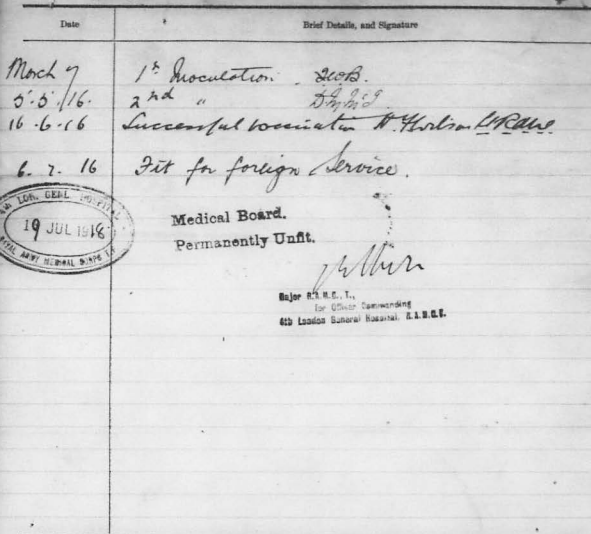 Date Brief Details, and Signature
March 7 1st Inoculation
5.5./16. 2nd "
16.6.16 Successful vaccination
6.7.16 Fit for foreign Service.
4TH LON. GENL. HOSPITAL
19 JUL 1918
ROYAL ARMY MEDICAL CORPS T.F.
Medical Board.
Permanently Unfit.
Major R.A.M.C., T.,
for Officer Commanding
4th London General Hospital, R.A.M.C.T.